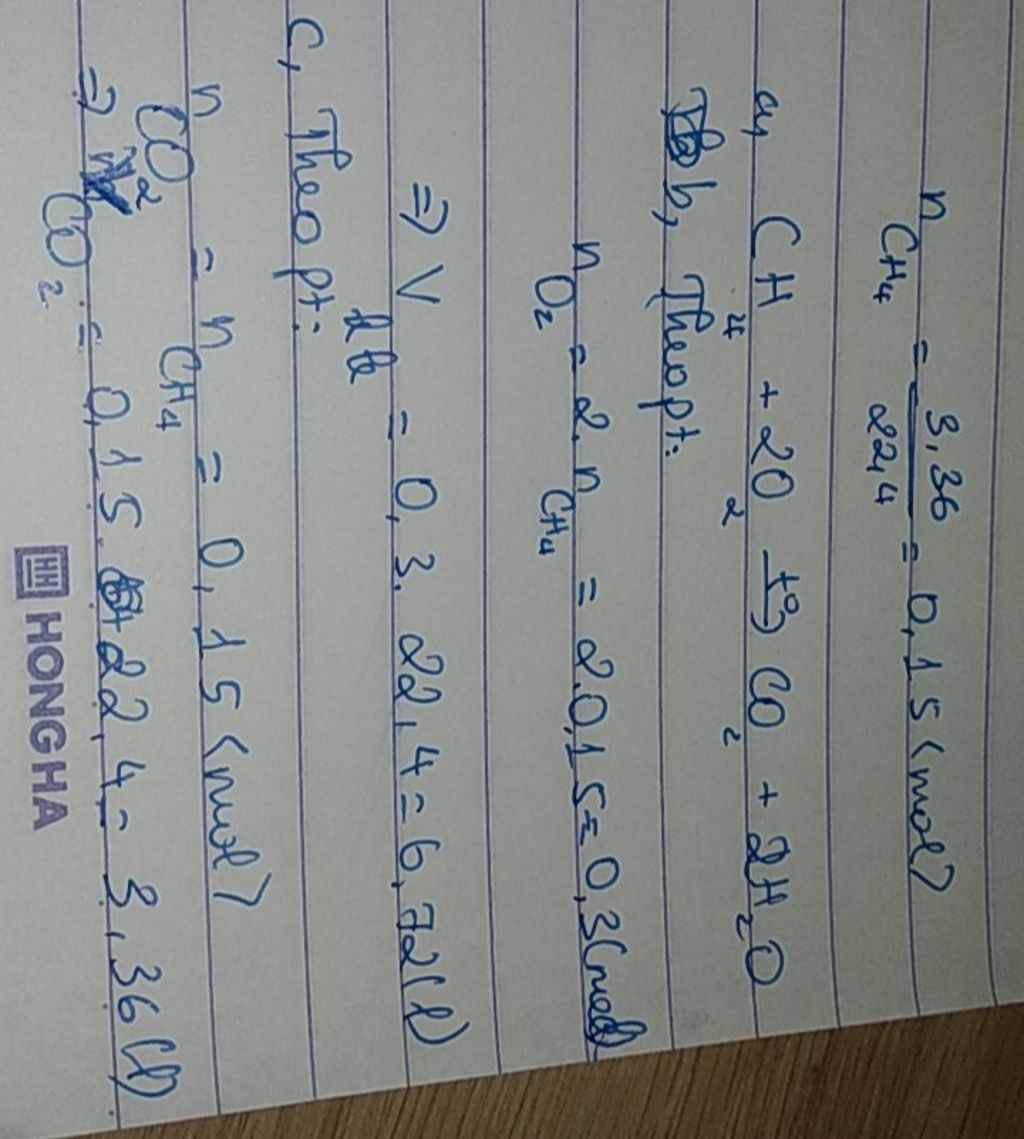 n CH4 = 3,36 / 22,4 = 0,15 (mol)
a, CH4 + 2O2 t° → CO2 + 2H2O
b, Theo pt:
n O2 = 2. n CH4 = 2.0,15 = 0,3 (mol)
=> V = 0,3. 22,4 = 6,72 (l)
c, Theo pt:
n CO2 = n CH4 = 0,15 (mol)
=> CO2 = 0,15. 22,4 = 3,36 (l)
HONG HA